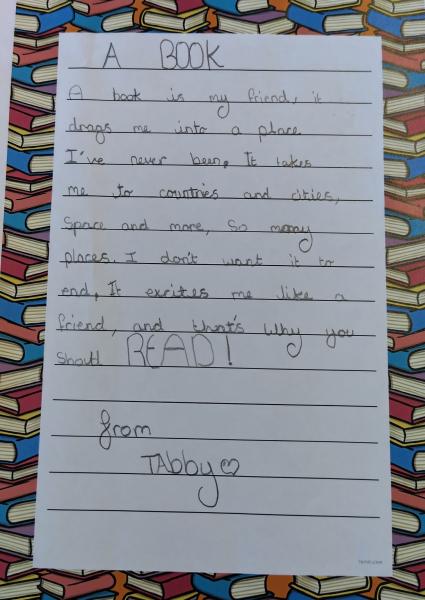 A BOOK
A book is my friend, it
drags me into a place
I've never been, It takes
me to countries and cities,
Space and more, So many
places. I don't want it to
end, It excites me like a
friend, and that's why you
Should READ!
from
TAbby♡